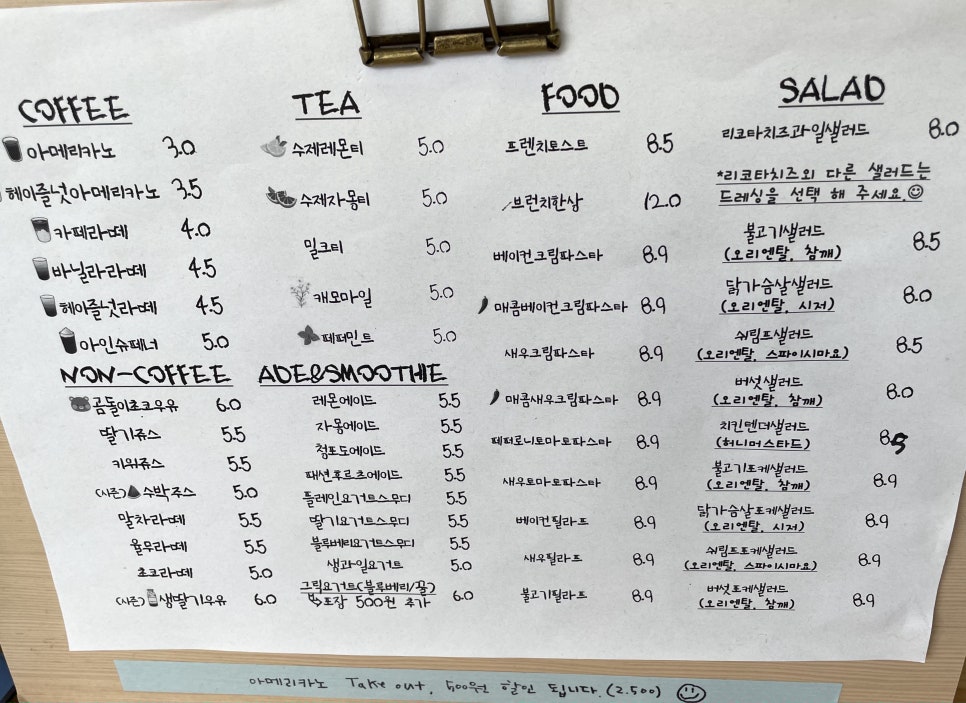 COFFEE
아메리카노 3.0
헤이즐넛아메리카노 3.5
카페라떼 4.0
바닐라라떼 4.5
헤이즐넛라떼 4.5
아인슈페너 5.0
NON-COFFEE
곰돌이초코우유 6.0
딸기쥬스 5.5
키위쥬스 5.5
(시즌)수박주스 5.0
말차라떼 5.5
율무라떼 5.5
초코라떼 5.0
(시즌)생딸기우유 6.0
TEA
수제레몬티 5.0
수제자몽티 5.0
밀크티 5.0
캐모마일 5.0
페퍼민트 5.0
ADE&SMOOTHIE
레몬에이드 5.5
자몽에이드 5.5
청포도에이드 5.5
패션후르츠에이드 5.5
플레인요거트스무디 5.5
딸기요거트스무디 5.5
블루베리요거트스무디 5.5
생과일요거트 5.0
그릭요거트(블루베리/꿀)
↳포장 500원 추가 6.0
FOOD
프렌치토스트 8.5
브런치한상 12.0
베이컨크림파스타 8.9
매콤베이컨크림파스타 8.9
새우크림파스타 8.9
매콤새우크림파스타 8.9
페퍼로니토마토파스타 8.9
새우토마토파스타 8.9
베이컨필라프 8.9
새우필라프 8.9
불고기필라프 8.9
SALAD
리코타치즈과일샐러드 8.0
*리코타치즈외 다른 샐러드는
드레싱을 선택 해 주세요.☺
불고기샐러드 8.5
(오리엔탈, 참깨)
닭가슴살샐러드 8.0
(오리엔탈, 시저)
쉬림프샐러드 8.5
(오리엔탈, 스파이시마요)
버섯샐러드 8.0
(오리엔탈, 참깨)
치킨텐더샐러드 8.5
(허니머스타드)
불고기포케샐러드 8.9
(오리엔탈, 참깨)
닭가슴살포케샐러드 8.9
(오리엔탈, 시저)
쉬림프포케샐러드 8.9
(오리엔탈, 스파이시마요)
버섯포케샐러드 8.9
(오리엔탈, 참깨)
아메리카노 Take out, 500원 할인 됩니다.(2.500) ☺